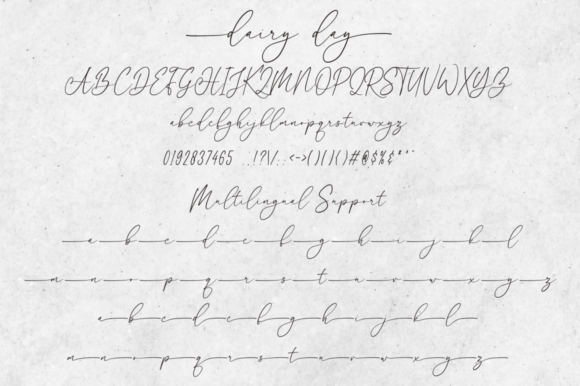 dairy day
ABCDEFGHIJKLMNOPQRSTUVWXYZ
abcdefghijklmnopqrstuvwxyz
0192837465 ..!?\/..<->()[]()#@$%&*"
Multilingual Support
a b c d e f g h i j k l
m n o p q r s t u v w x y z
a b c d e f g h i j k l
m n o p q r s t u v w x y z